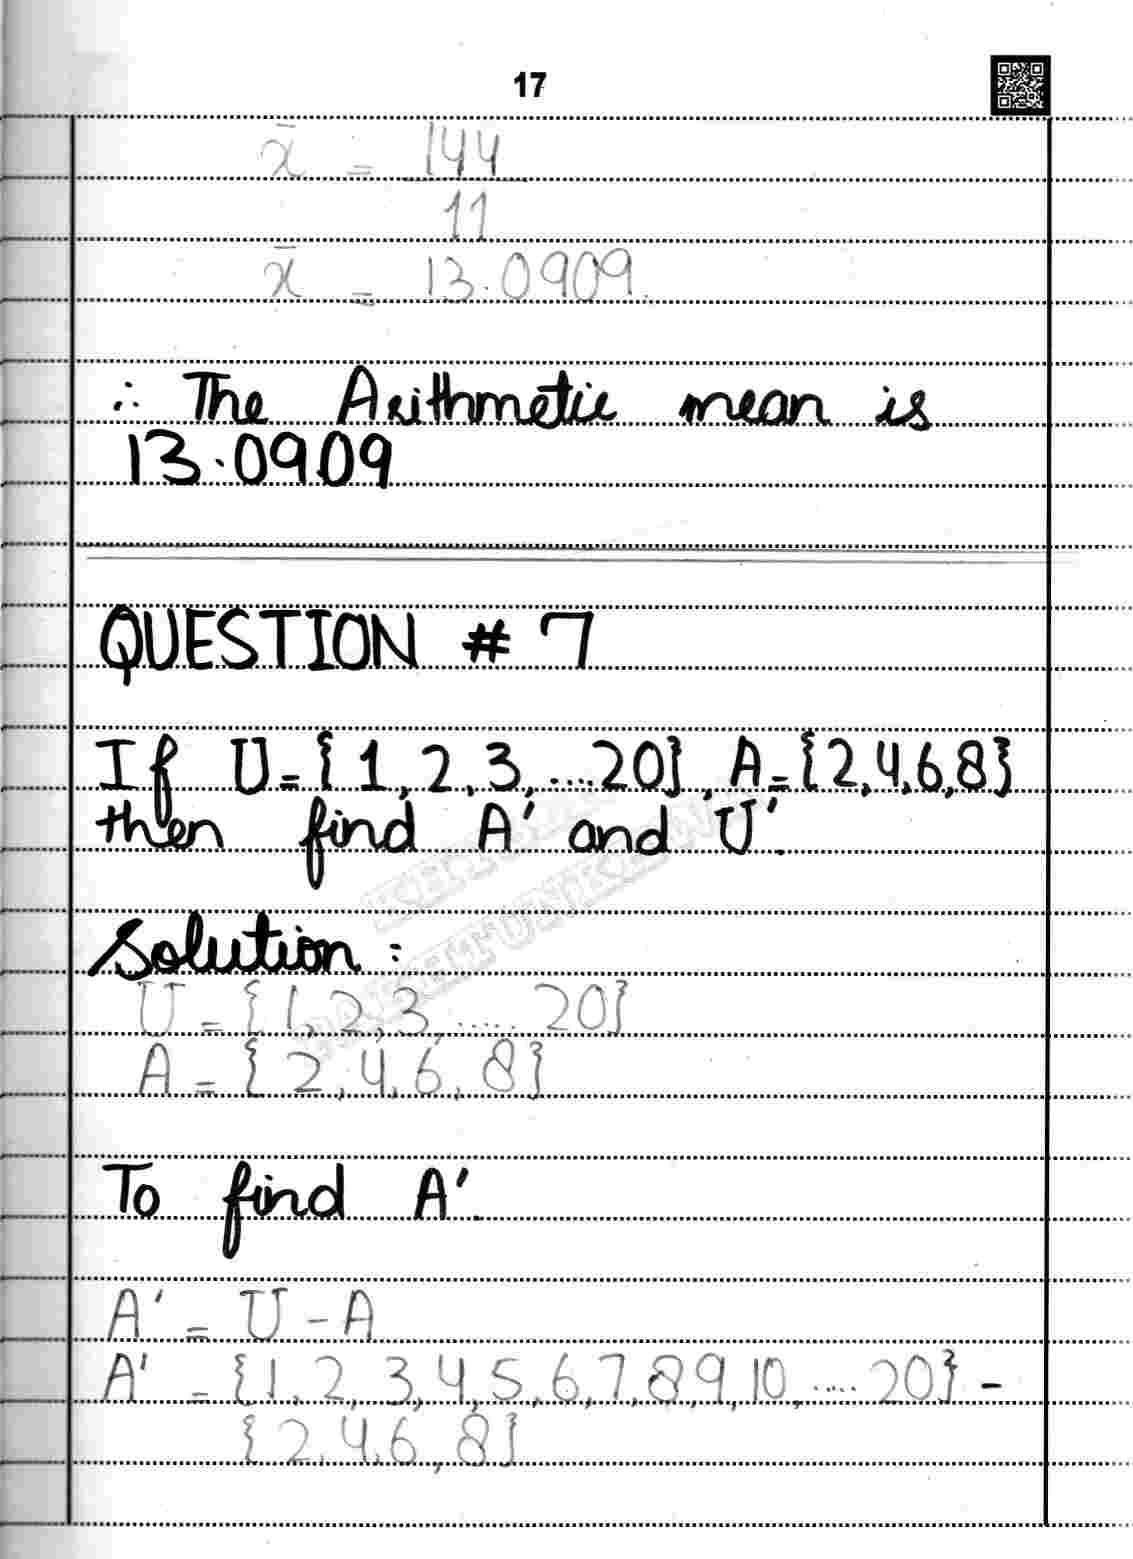 17
x̄ = 144
11
x̄ = 13.0909.
∴ The Arithmetic mean is
13.0909
QUESTION # 7
If U = {1, 2, 3, .... 20}, A = {2, 4, 6, 8}
then find A' and U'.
Solution :
U = {1, 2, 3, ..... 20}
A = {2, 4, 6, 8}
To find A'.
A' = U - A
A' = {1, 2, 3, 4, 5, 6, 7, 8, 9, 10, .... 20} -
{2, 4, 6, 8}